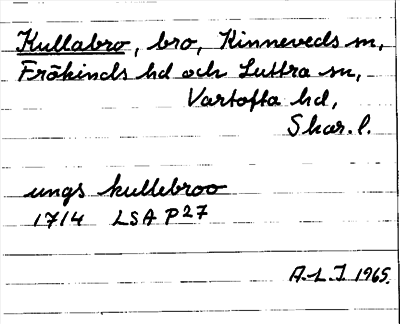 Kullabro, bro, Kinneveds sn,
Frökinds hd och Luttra sn,
Vartofta hd,
Skar. l.
ungs kullebroo
1714 LSA P27
A.L.J. 1965.